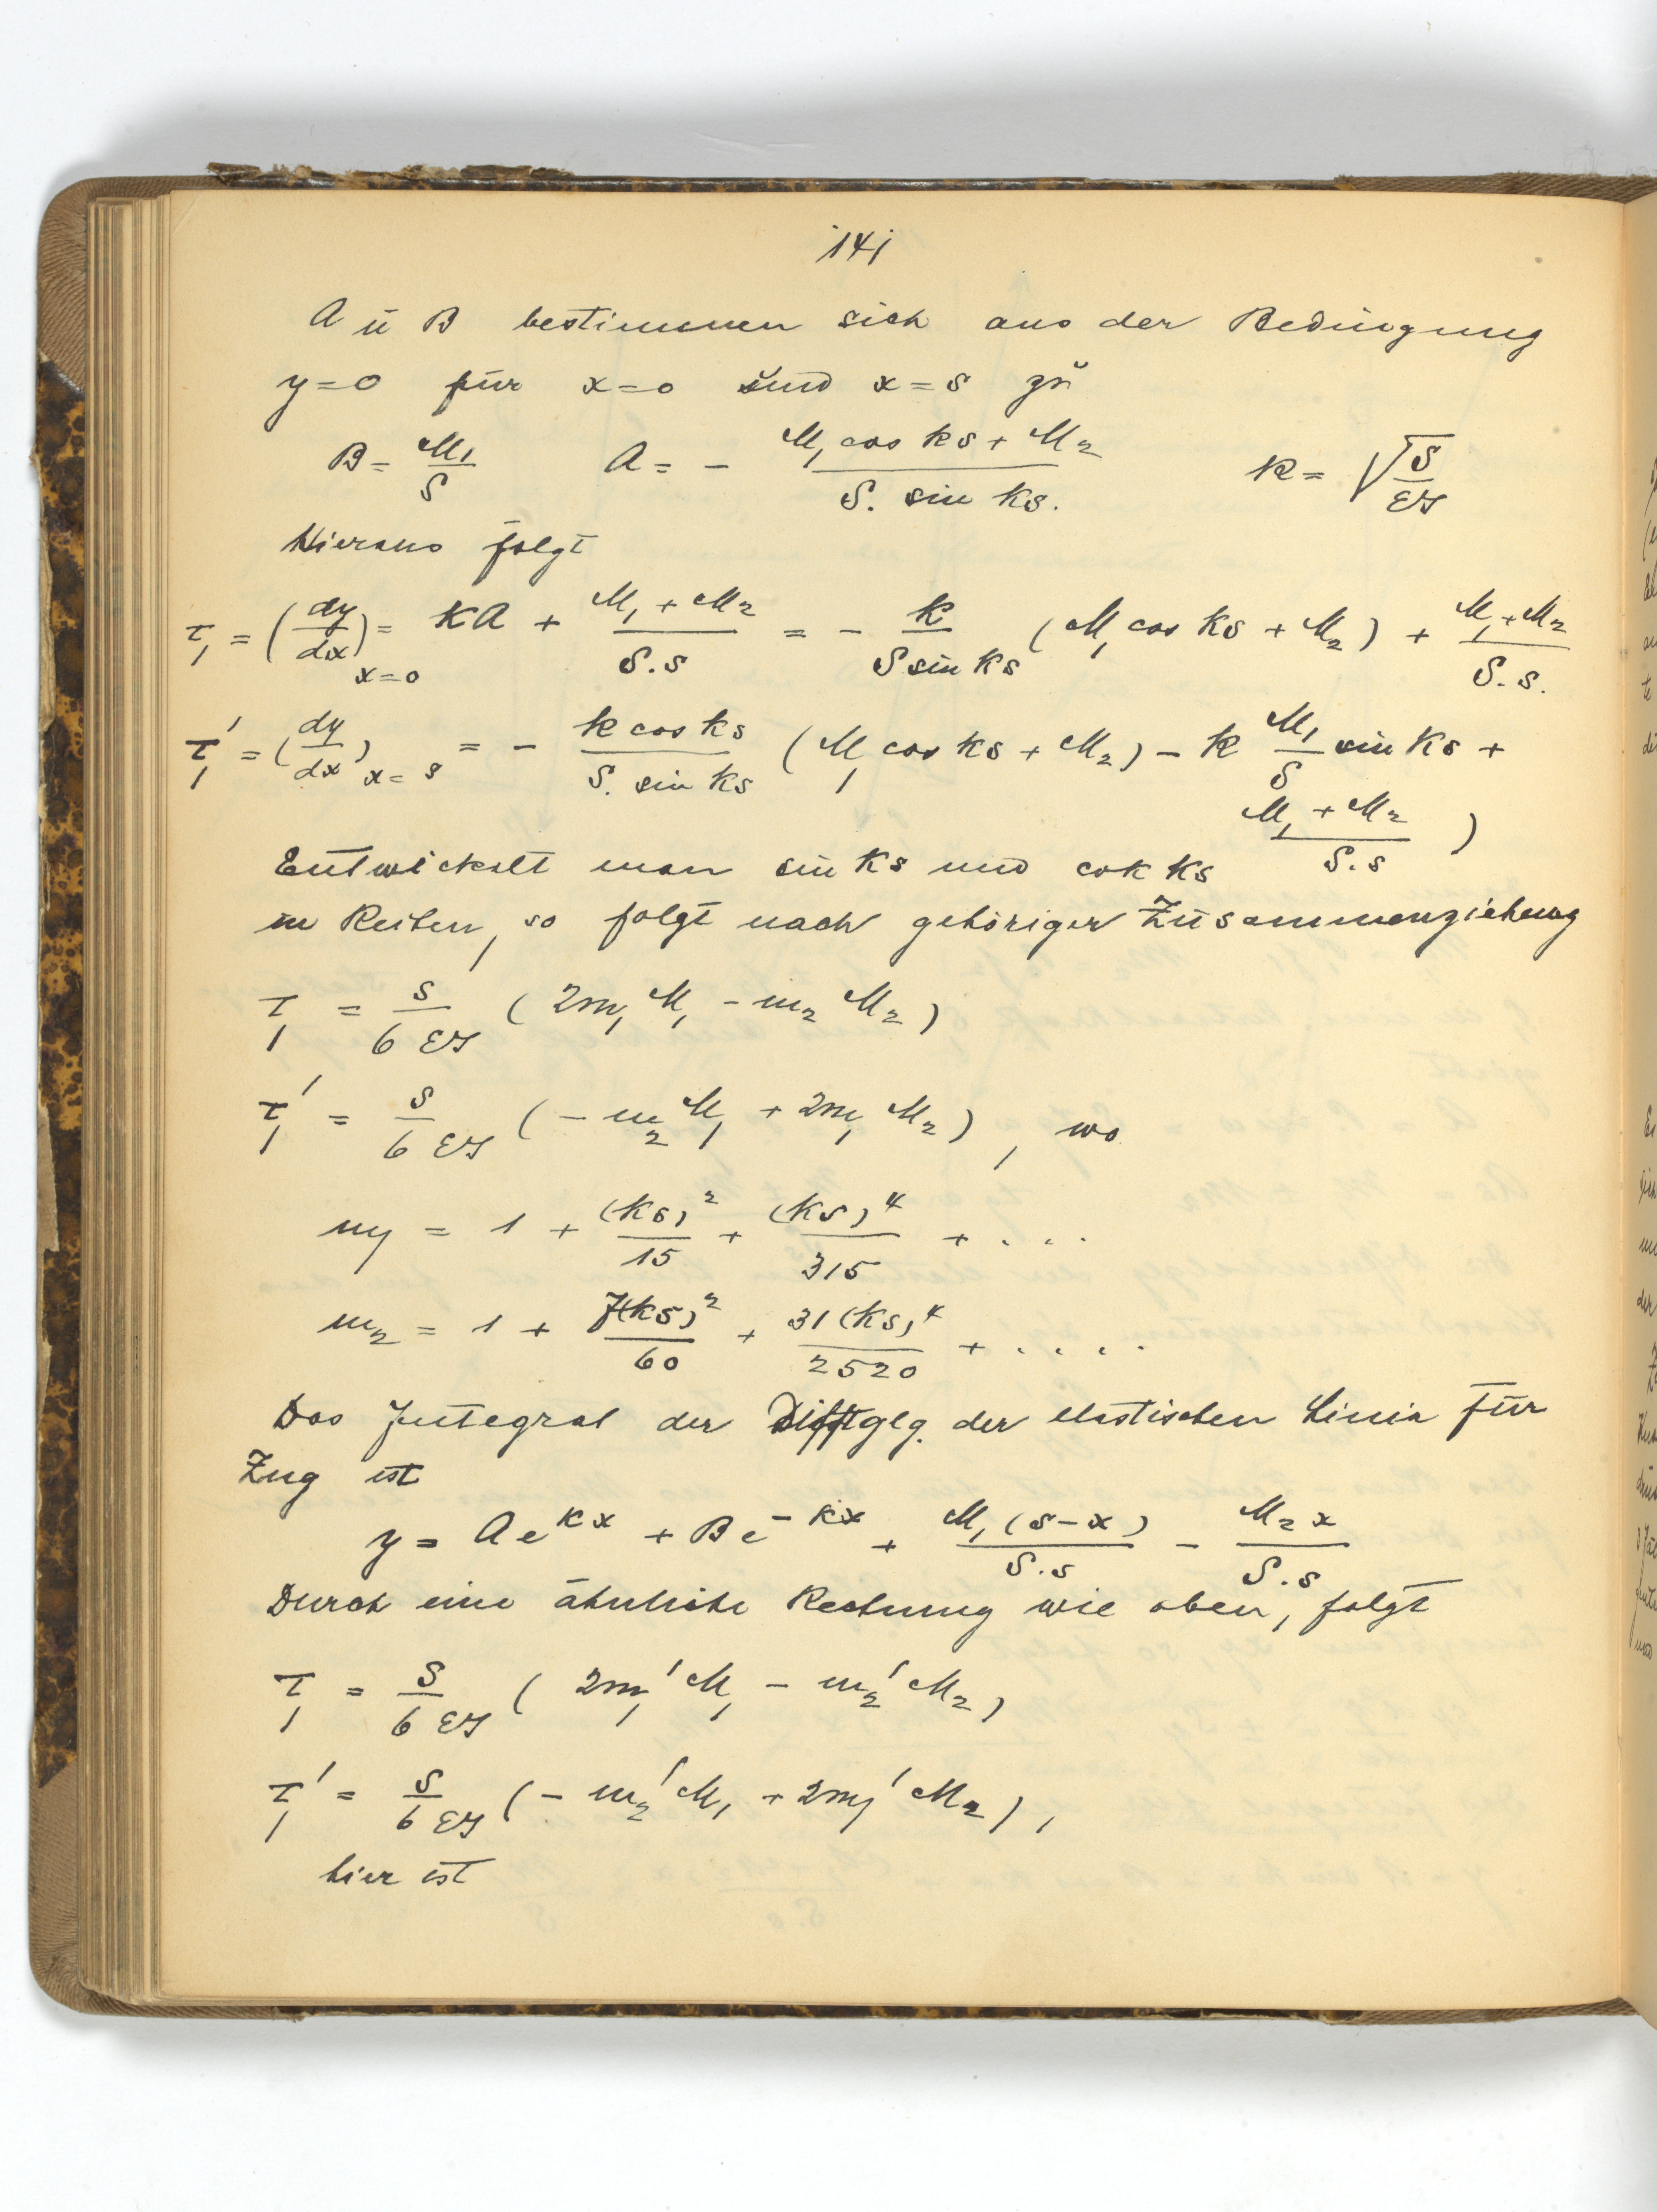 141
A u B bestimmen sich aus der Bedingung
y=0 für x=0 und x=s zu
B = M₁/S A = - (M₁ cos ks + M₂)/(S. sin ks.) k = √(S/EJ)
Hieraus folgt
τ₁ = (dy/dx)ₓ₌₀ = kA + (M₁ + M₂)/(S.s) = - k/(S sin ks) (M₁ cos ks + M₂) + (M₁ + M₂)/(S.s.)
τ₁' = (dy/dx)ₓ₌ₛ = - (k cos ks)/(S. sin ks) (M₁ cos ks + M₂) - k M₁/S sin ks +
(M₁ + M₂)/(S.s) )
Entwickelt man sin ks und cok ks
in Reihen, so folgt nach gehöriger Zusammenziehung
τ₁ = s/(6 EJ) (2m₁ M₁ - m₂ M₂)
τ₁' = s/(6 EJ) (- m₂ M₁ + 2m₁ M₂), wo
m₁ = 1 + (ks)²/15 + (ks)⁴/315 + . . .
m₂ = 1 + 7(ks)²/60 + 31(ks)⁴/2520 + . . . .
Das Integral der Diffglg. der elastischen Linie für
Zug ist
y = A e^kx + B e^-kx + M₁(s-x)/(S.s) - M₂x/(S.s)
Durch eine ähnliche Rechnung wie oben, folgt
τ₁ = s/(6 EJ) (2m₁' M₁ - m₂' M₂)
τ₁' = s/(6 EJ) (- m₂' M₁ + 2m₁' M₂),
hier ist